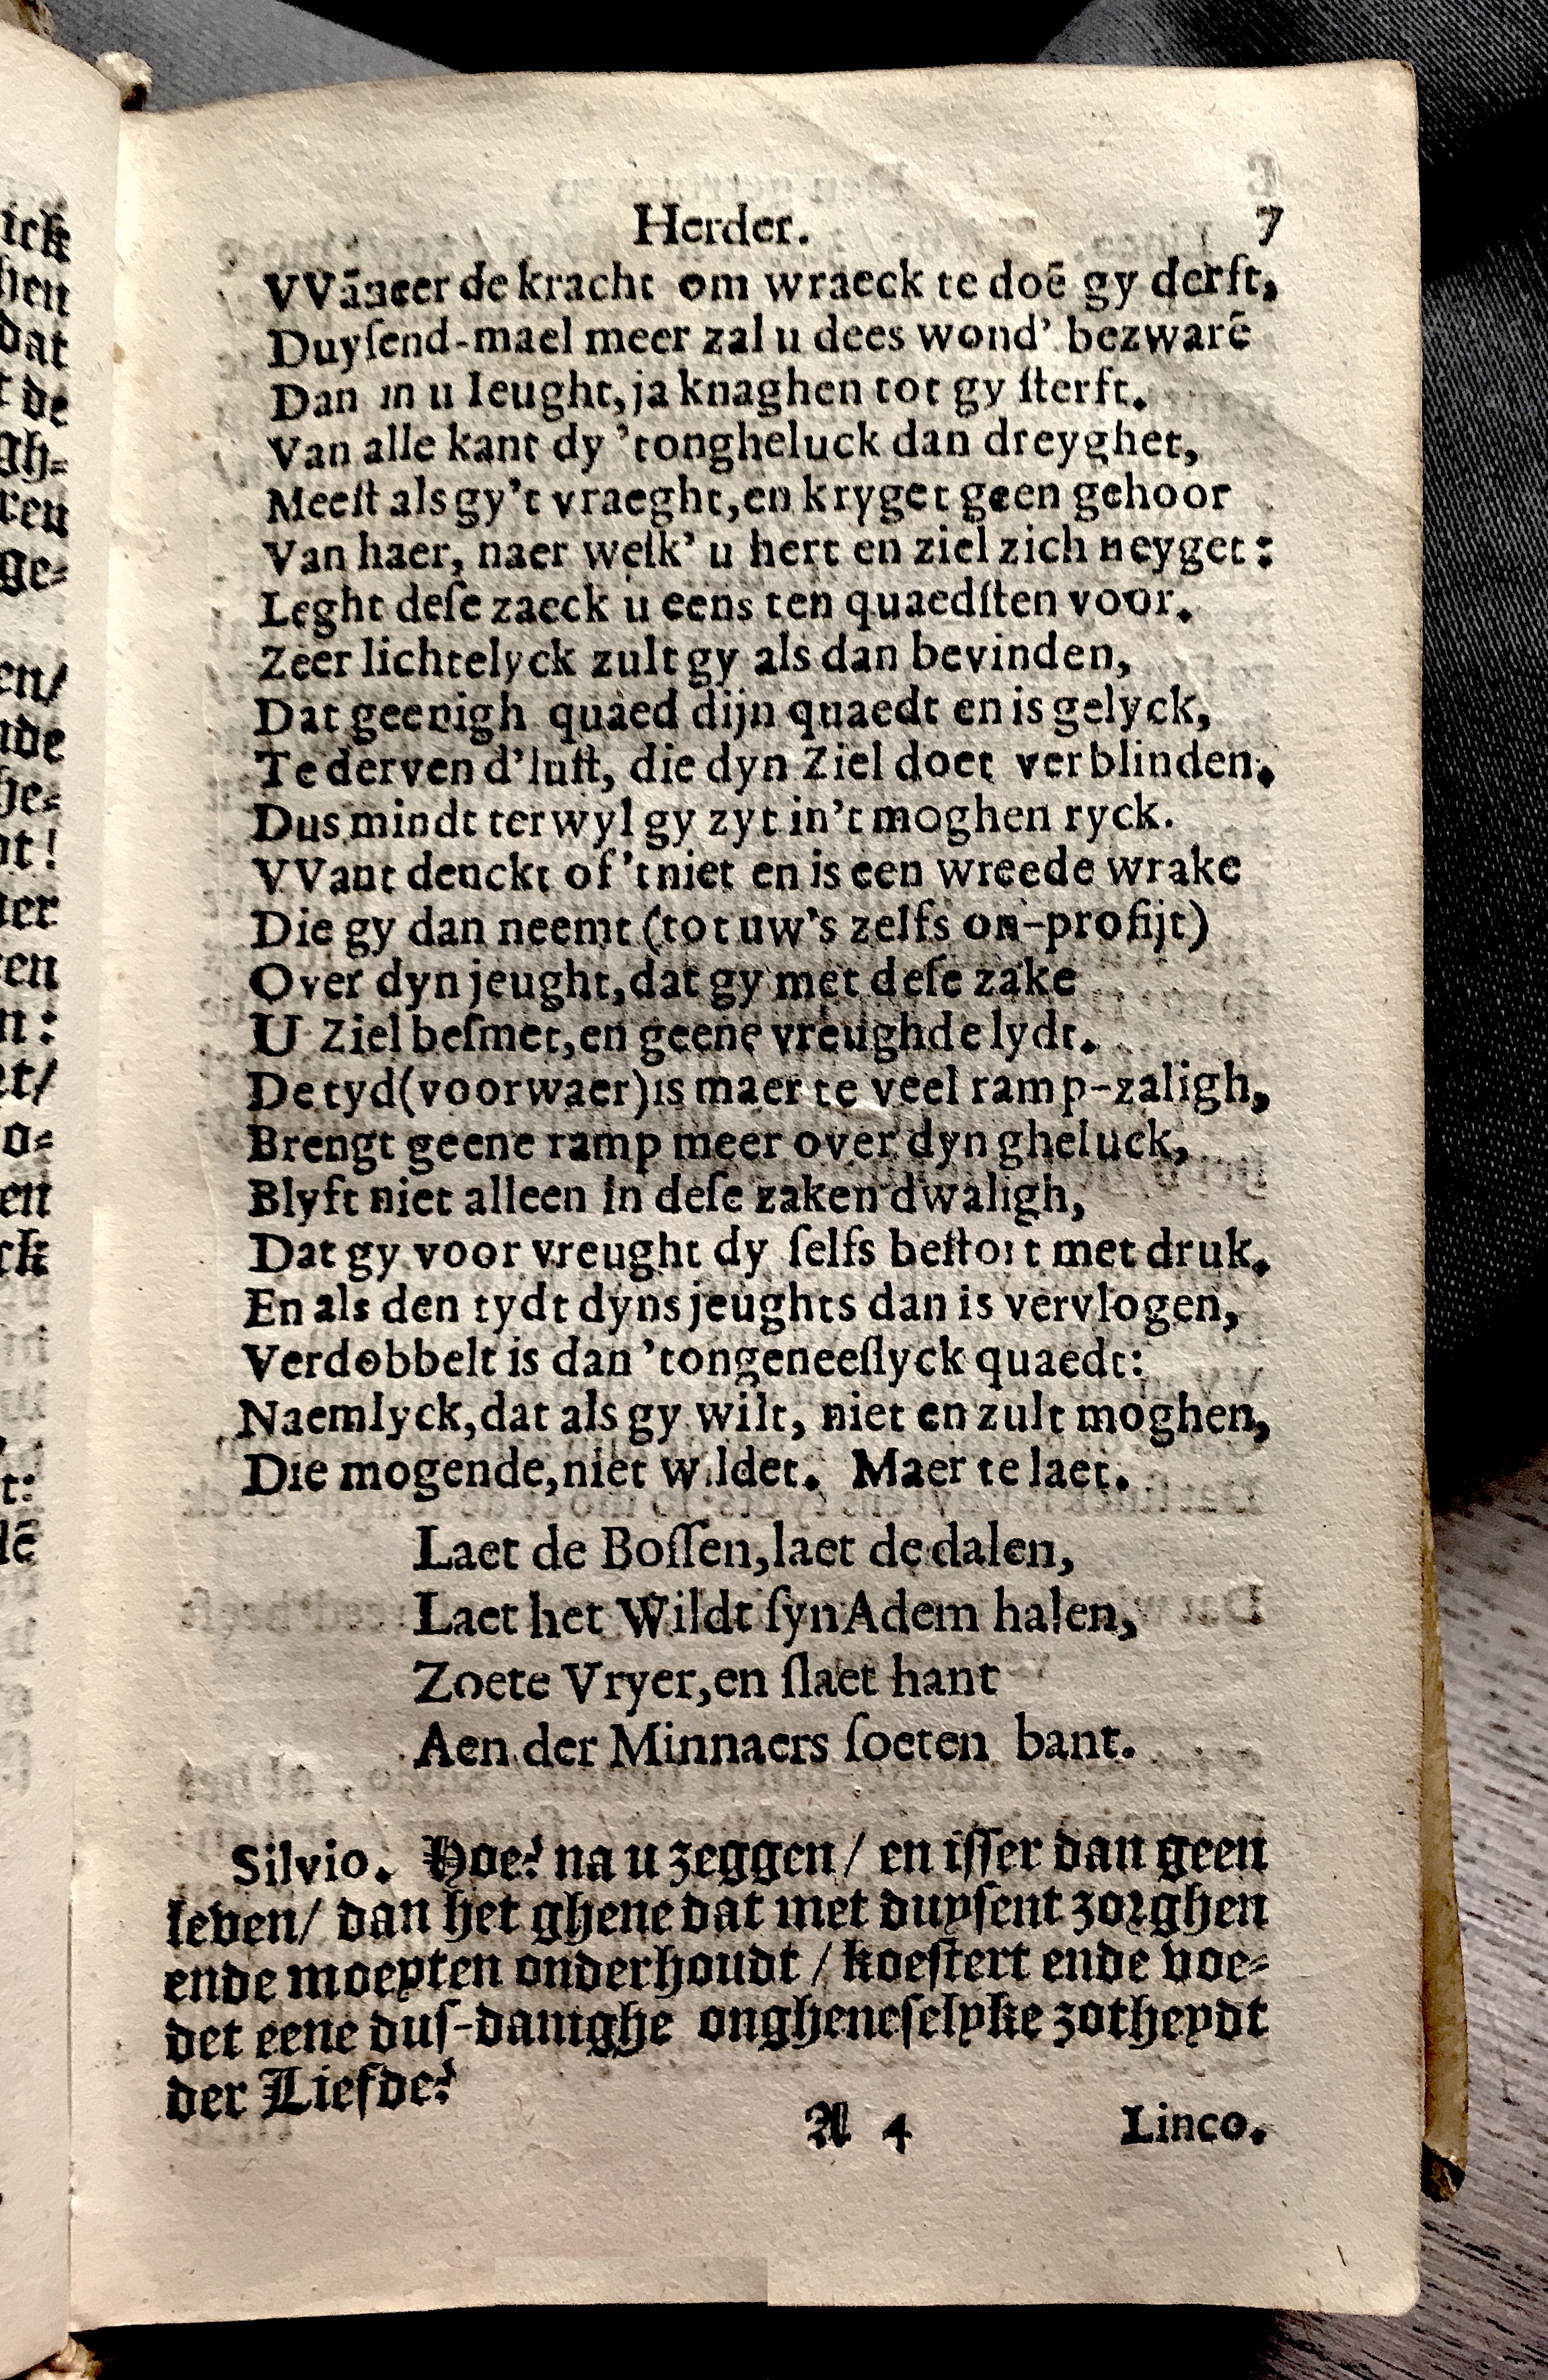 Herder. 7
VVāneer de kracht om wraeck te doē gy derft,
Duyſend-mael meer zal u dees wond' bezwarē
Dan in u Ieught, ja knaghen tot gy ſterft.
Van alle kant dy 'tongheluck dan dreyghet,
Meeſt als gy't vraeght, en kryget geen gehoor
Van haer, naer welk' u hert en ziel zich neyget:
Leght deſe zaeck u eens ten quaedſten voor.
Zeer lichtelyck zult gy als dan bevinden,
Dat geenigh quaed dijn quaedt en is gelyck,
Te derven d'luſt, die dyn Ziel doet verblinden.
Dus mindt terwyl gy zyt in't moghen ryck.
VVant denckt of 't niet en is een wreede wrake
Die gy dan neemt (tot uw's zelfs on-profijt)
Over dyn jeught, dat gy met deſe zake
U Ziel beſmet, en geene vreughde lydt.
De tyd (voorwaer) is maer te veel ramp-zaligh,
Brengt geene ramp meer over dyn gheluck,
Blyft niet alleen in deſe zaken dwaligh,
Dat gy voor vreught dy ſelfs beſtort met druk.
En als den tydt dyns jeughts dan is vervlogen,
Verdobbelt is dan 'tongeneeſlyck quaedt:
Naemlyck, dat als gy wilt, niet en zult moghen,
Die mogende, niet wildet. Maer te laet.
Laet de Boſſen, laet de dalen,
Laet het Wildt ſyn Adem halen,
Zoete Vryer, en ſlaet hant
Aen der Minnaers ſoeten bant.
Silvio. Hoe? na u zeggen / en iſſer dan geen
leven / dan het ghene dat met duyſent zorghen
ende moeyten onderhoudt / koeſtert ende voe⸗
det eene duſ-danighe ongheneſelyke zotheydt
der Liefde?
A 4 Linco.